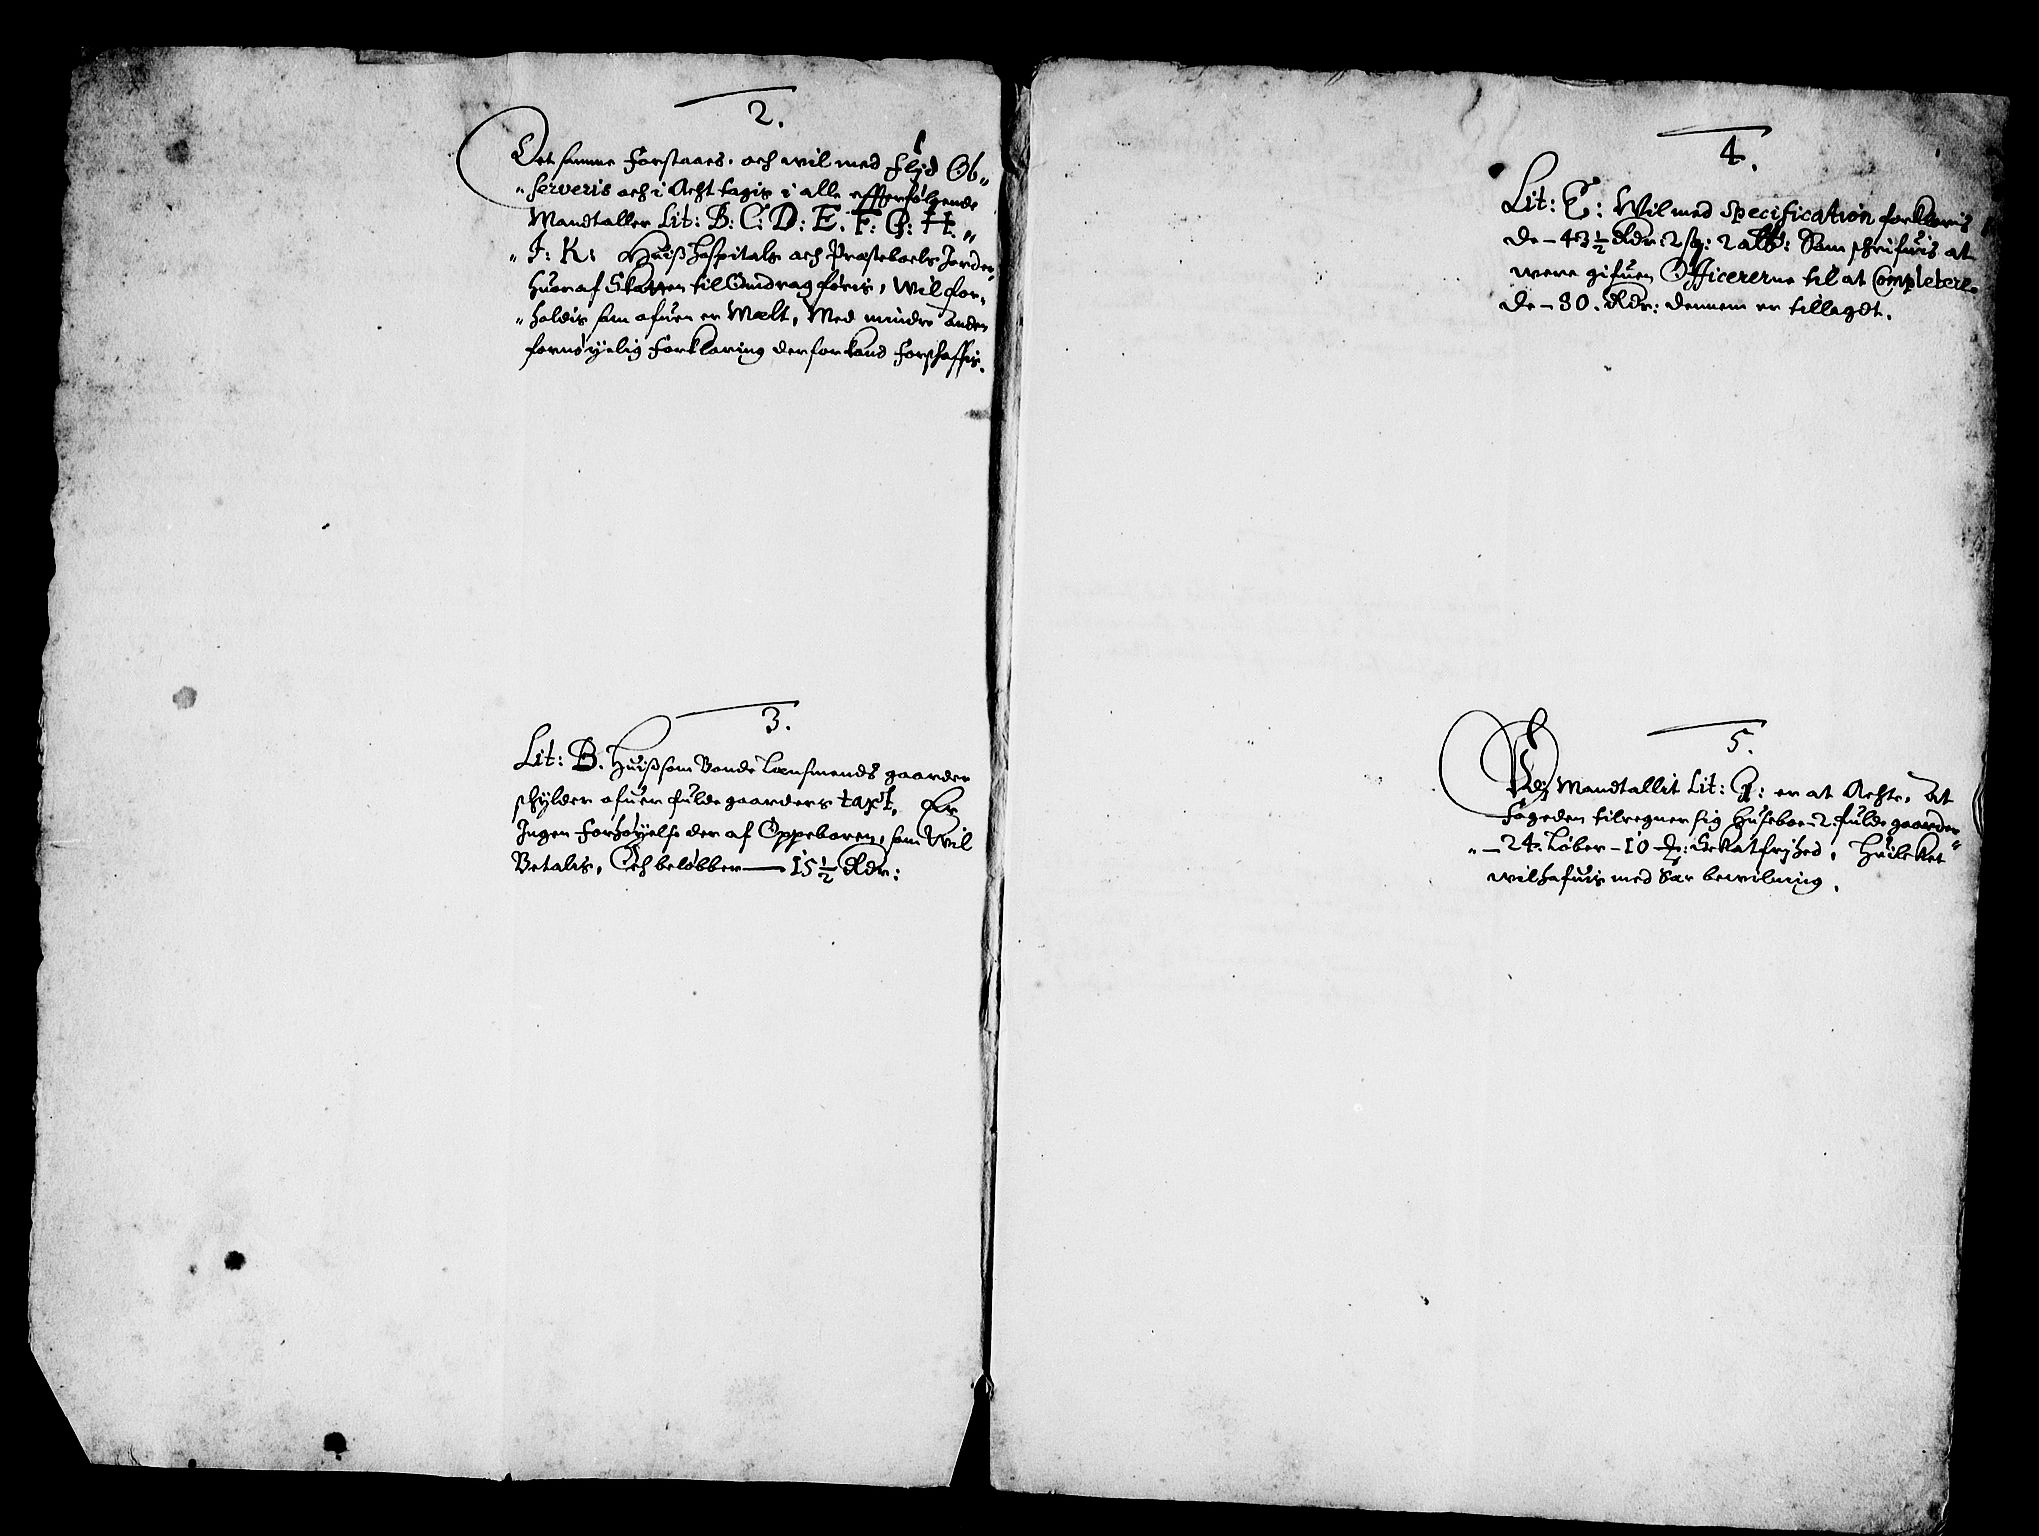 2.
Det samme Forstaaes, och wil med Flijd Ob„
„serveris och i Acht tagis i alle effterfølgende
Mandtaller Lit: B: C: D: E. F: G: H. „
„ I: K: Huiß Hospitals och Præsteboels Jorder
Huoraf Skatten til Omdrag føris, Wil for„
„holdis som ofuen er Melt, Med mindre Anden
fornøyelig Forklaring derfor kand Forschaffis.
3.
Lit: B. Huiß som Bonde Lensmends gaarder
schylder ofuer fulde gaarders taxt, Er
Ingen Forhøyelse der af Oppebaren, som Wil
Betalis, Och beløbber — 15½ Rdr:
4.
Lit: E: Wil med Specification forklaris
de – 43½ Rdr: 2 : 2 alb: Som schrifuis at
were gifuen Officererne til at Completere
de – 80. Rdr: dennem er tillagdt.
5.
Wed Mandtallit Lit: G: er at Achte, At
Fogeden tilregner sig Huseboe – 2 fulde gaarder
„ – 24. Løber – 10 : Skatfrjhed, Huilcket
wil hafuis med Kær bewilning.